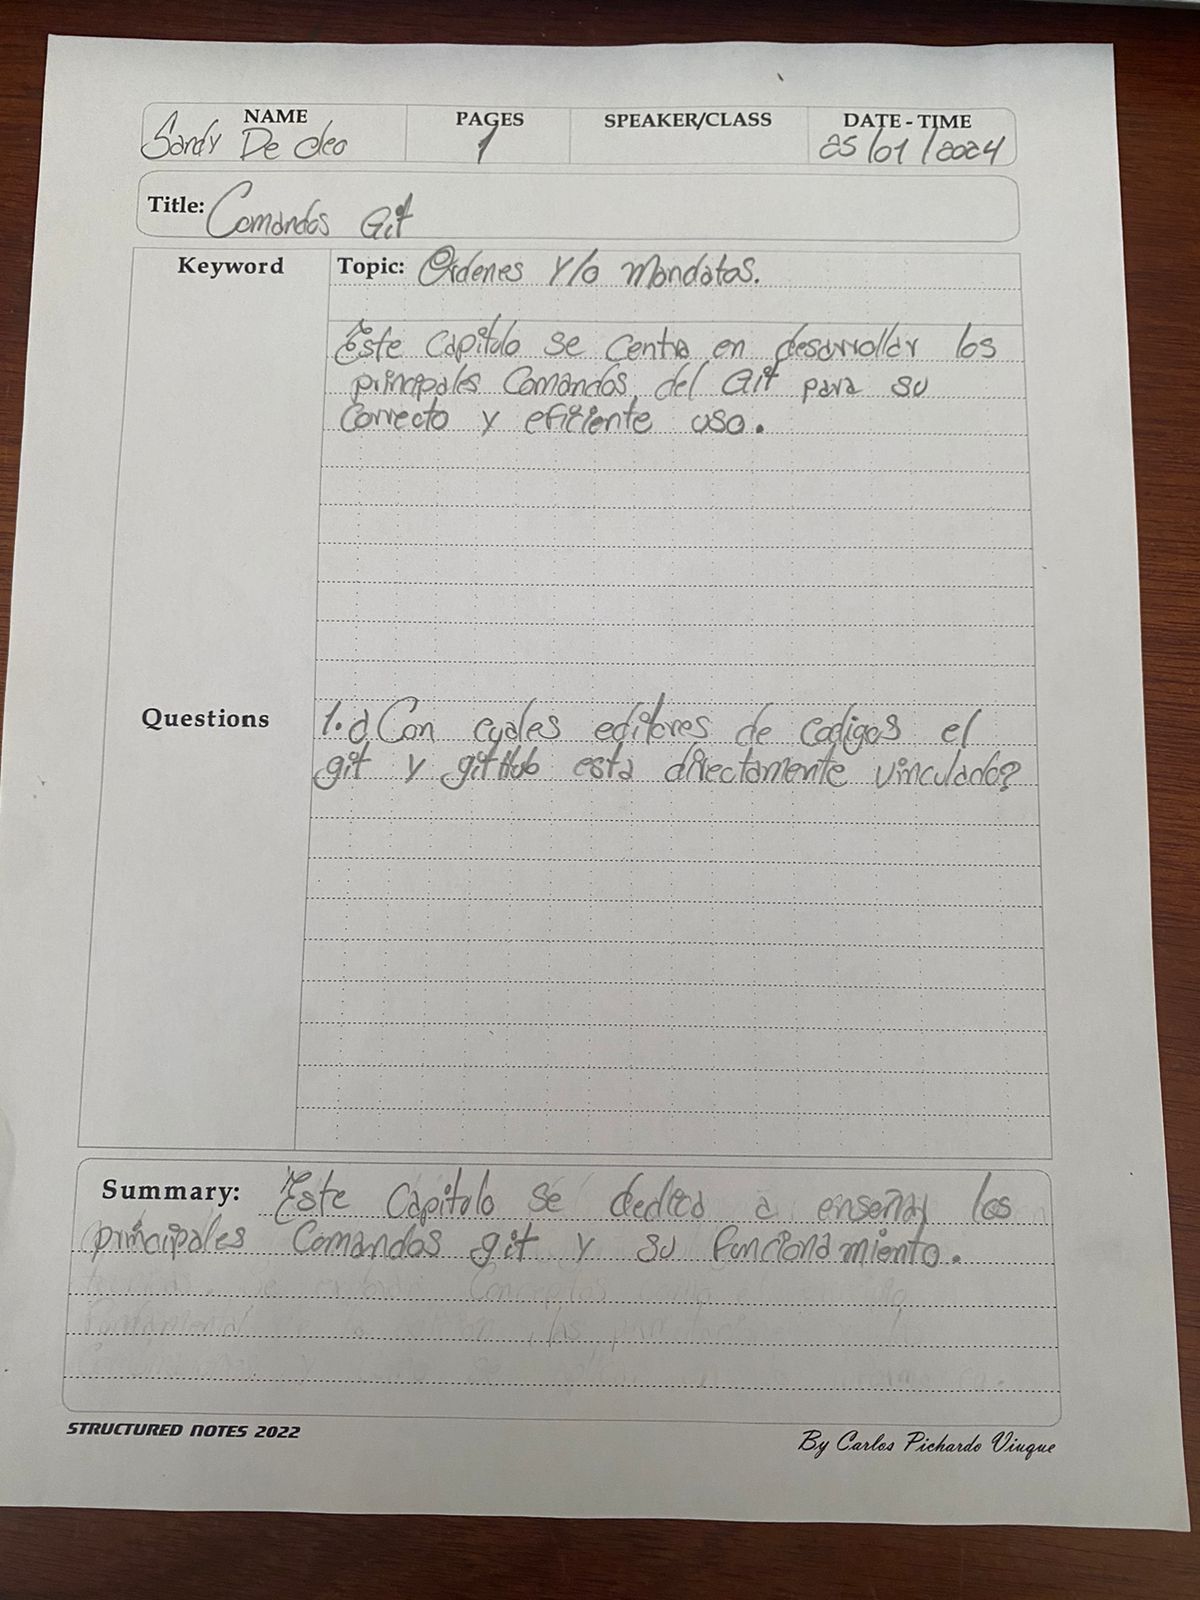 NAME PAGES SPEAKER/CLASS DATE - TIME
Sandy De oleo 1 25/01/2024
Title: Comandos Git
Keyword Topic: Ordenes Y/o Mandatos.
Este Capitulo se centra en desarrollar los
principales Comandos del Git para su
Correcto y eficiente uso.
Questions 1. ¿Con cuales editores de codigos el
git y gitHub esta directamente vinculado?
Summary: Este Capitulo se dedica a enseñar los
principales Comandos git y su funcionamiento.
STRUCTURED NOTES 2022
By Carlos Pichardo Viuque